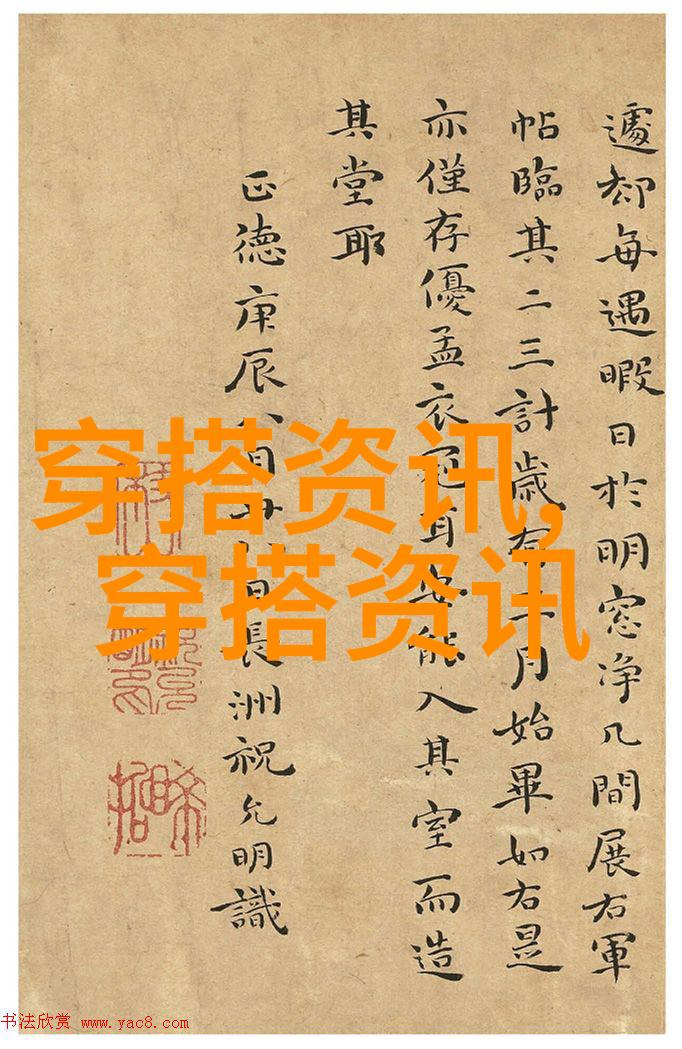 遽却每遇暇日於明窓净几間展右軍
帖臨其二三計歲有月始畢如右是
亦僅存優孟衣冠耳安能入其室而造
其堂耶
正德庚辰八月廿日長洲祝允明識
穿搭资讯,
穿搭资讯
书法欣赏 www.yac8.com